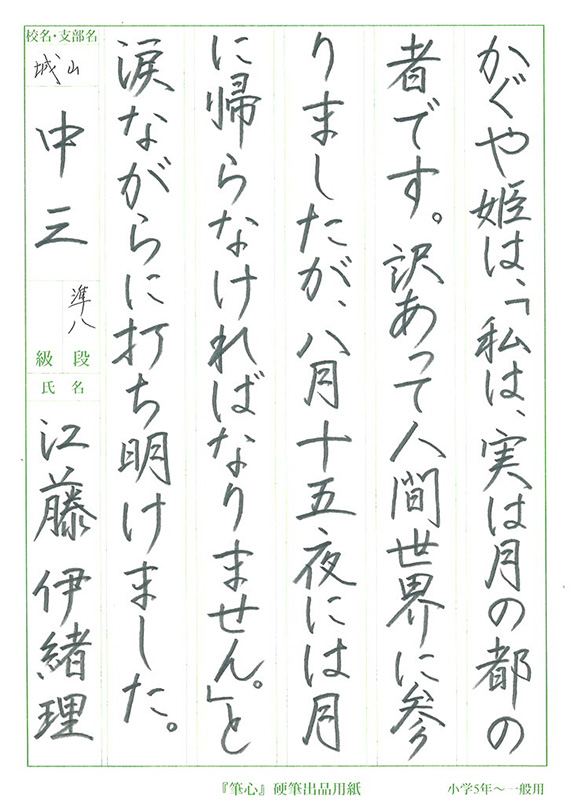 かぐや姫は、「私は、実は月の都の
者です。訳あって人間世界に参
りましたが、八月十五夜には月
に帰らなければなりません。」と
涙ながらに打ち明けました。
校名・支部名
城山
中三
準八
段
級
氏名
江藤伊緒理
『筆心』硬筆出品用紙
小学5年～一般用